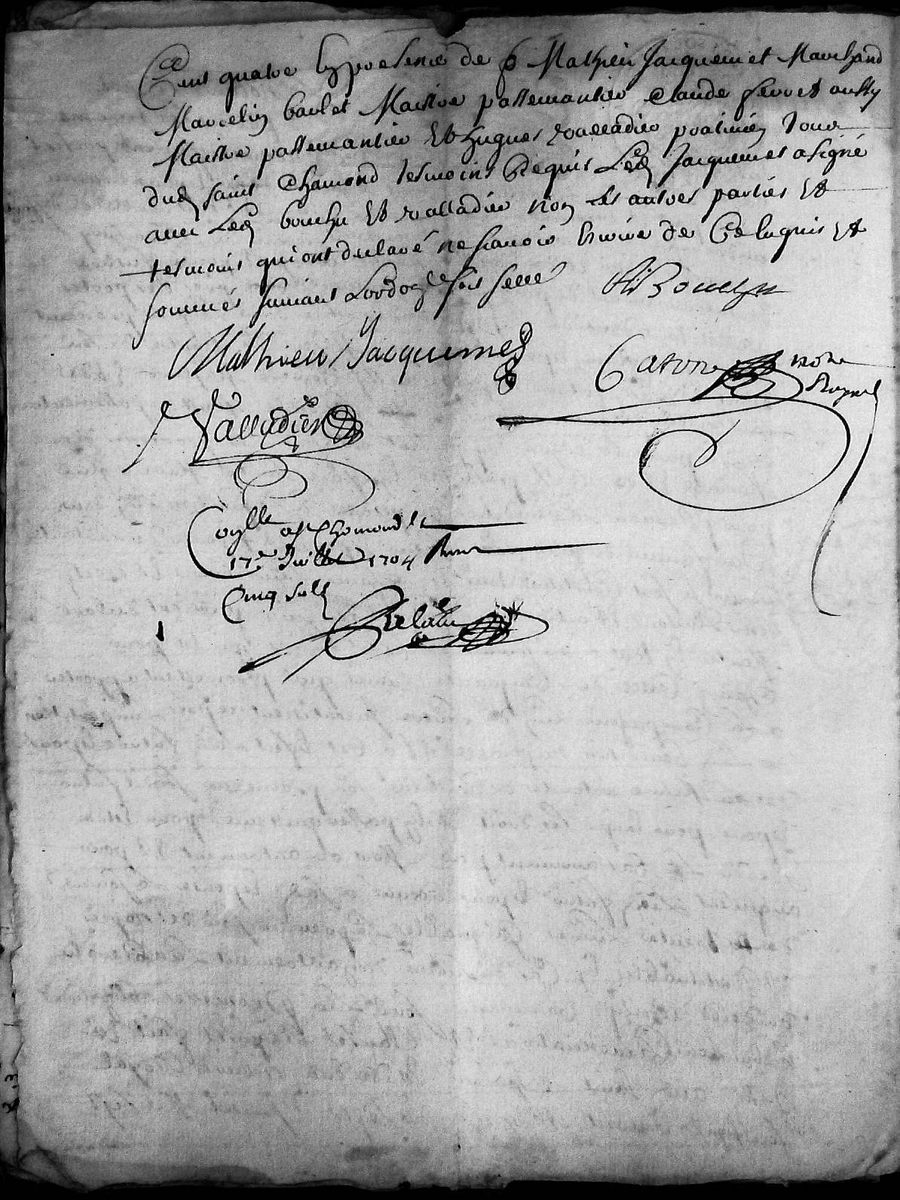 Cent quatre en presence de Sr Mathieu Jacquemet Marchand
Marcelin Maistre passemantier Claude aussy
Maistre passemantier et hugues valladier praticien tous
dud saint Chamond tesmoins requis Led Jacquemet a signé
avec Led bouchu et valladier non les autres parties et
tesmoins qui ont declaré ne sçavoir Escrire de ce Enquis et
sommés suivant Lordoe
Mathieu Jacquemet
Caton note
Royal
Valladier
Conlle a St Chamond le
17e Juillet 1704
Cinq solz